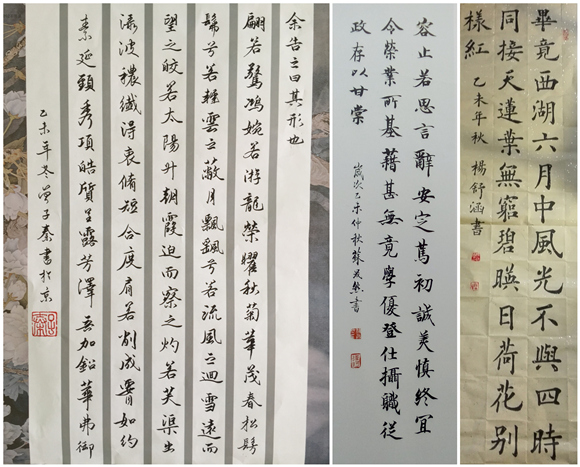 余告之曰其形也
翩若驚鴻婉若游龍榮曜秋菊華茂春松髣
髴兮若輕雲之蔽月飄飖兮若流風之迴雪遠而
望之皎若太陽升朝霞迫而察之灼若芙渠出
淥波穠纖得衷脩短合度肩若削成腰如約
素延頸秀項皓質呈露芳澤無加鉛華弗御
乙未年冬曾子秦書於京
容止若思言辭安定篤初誠美慎終宜
令榮業所基藉甚無竟學優登仕攝職從
政存以甘棠
歲次乙未仲秋 書
畢竟西湖六月中風光不與四時
同接天蓮葉無窮碧暎日荷花別
樣紅 乙未年秋 楊舒涵書